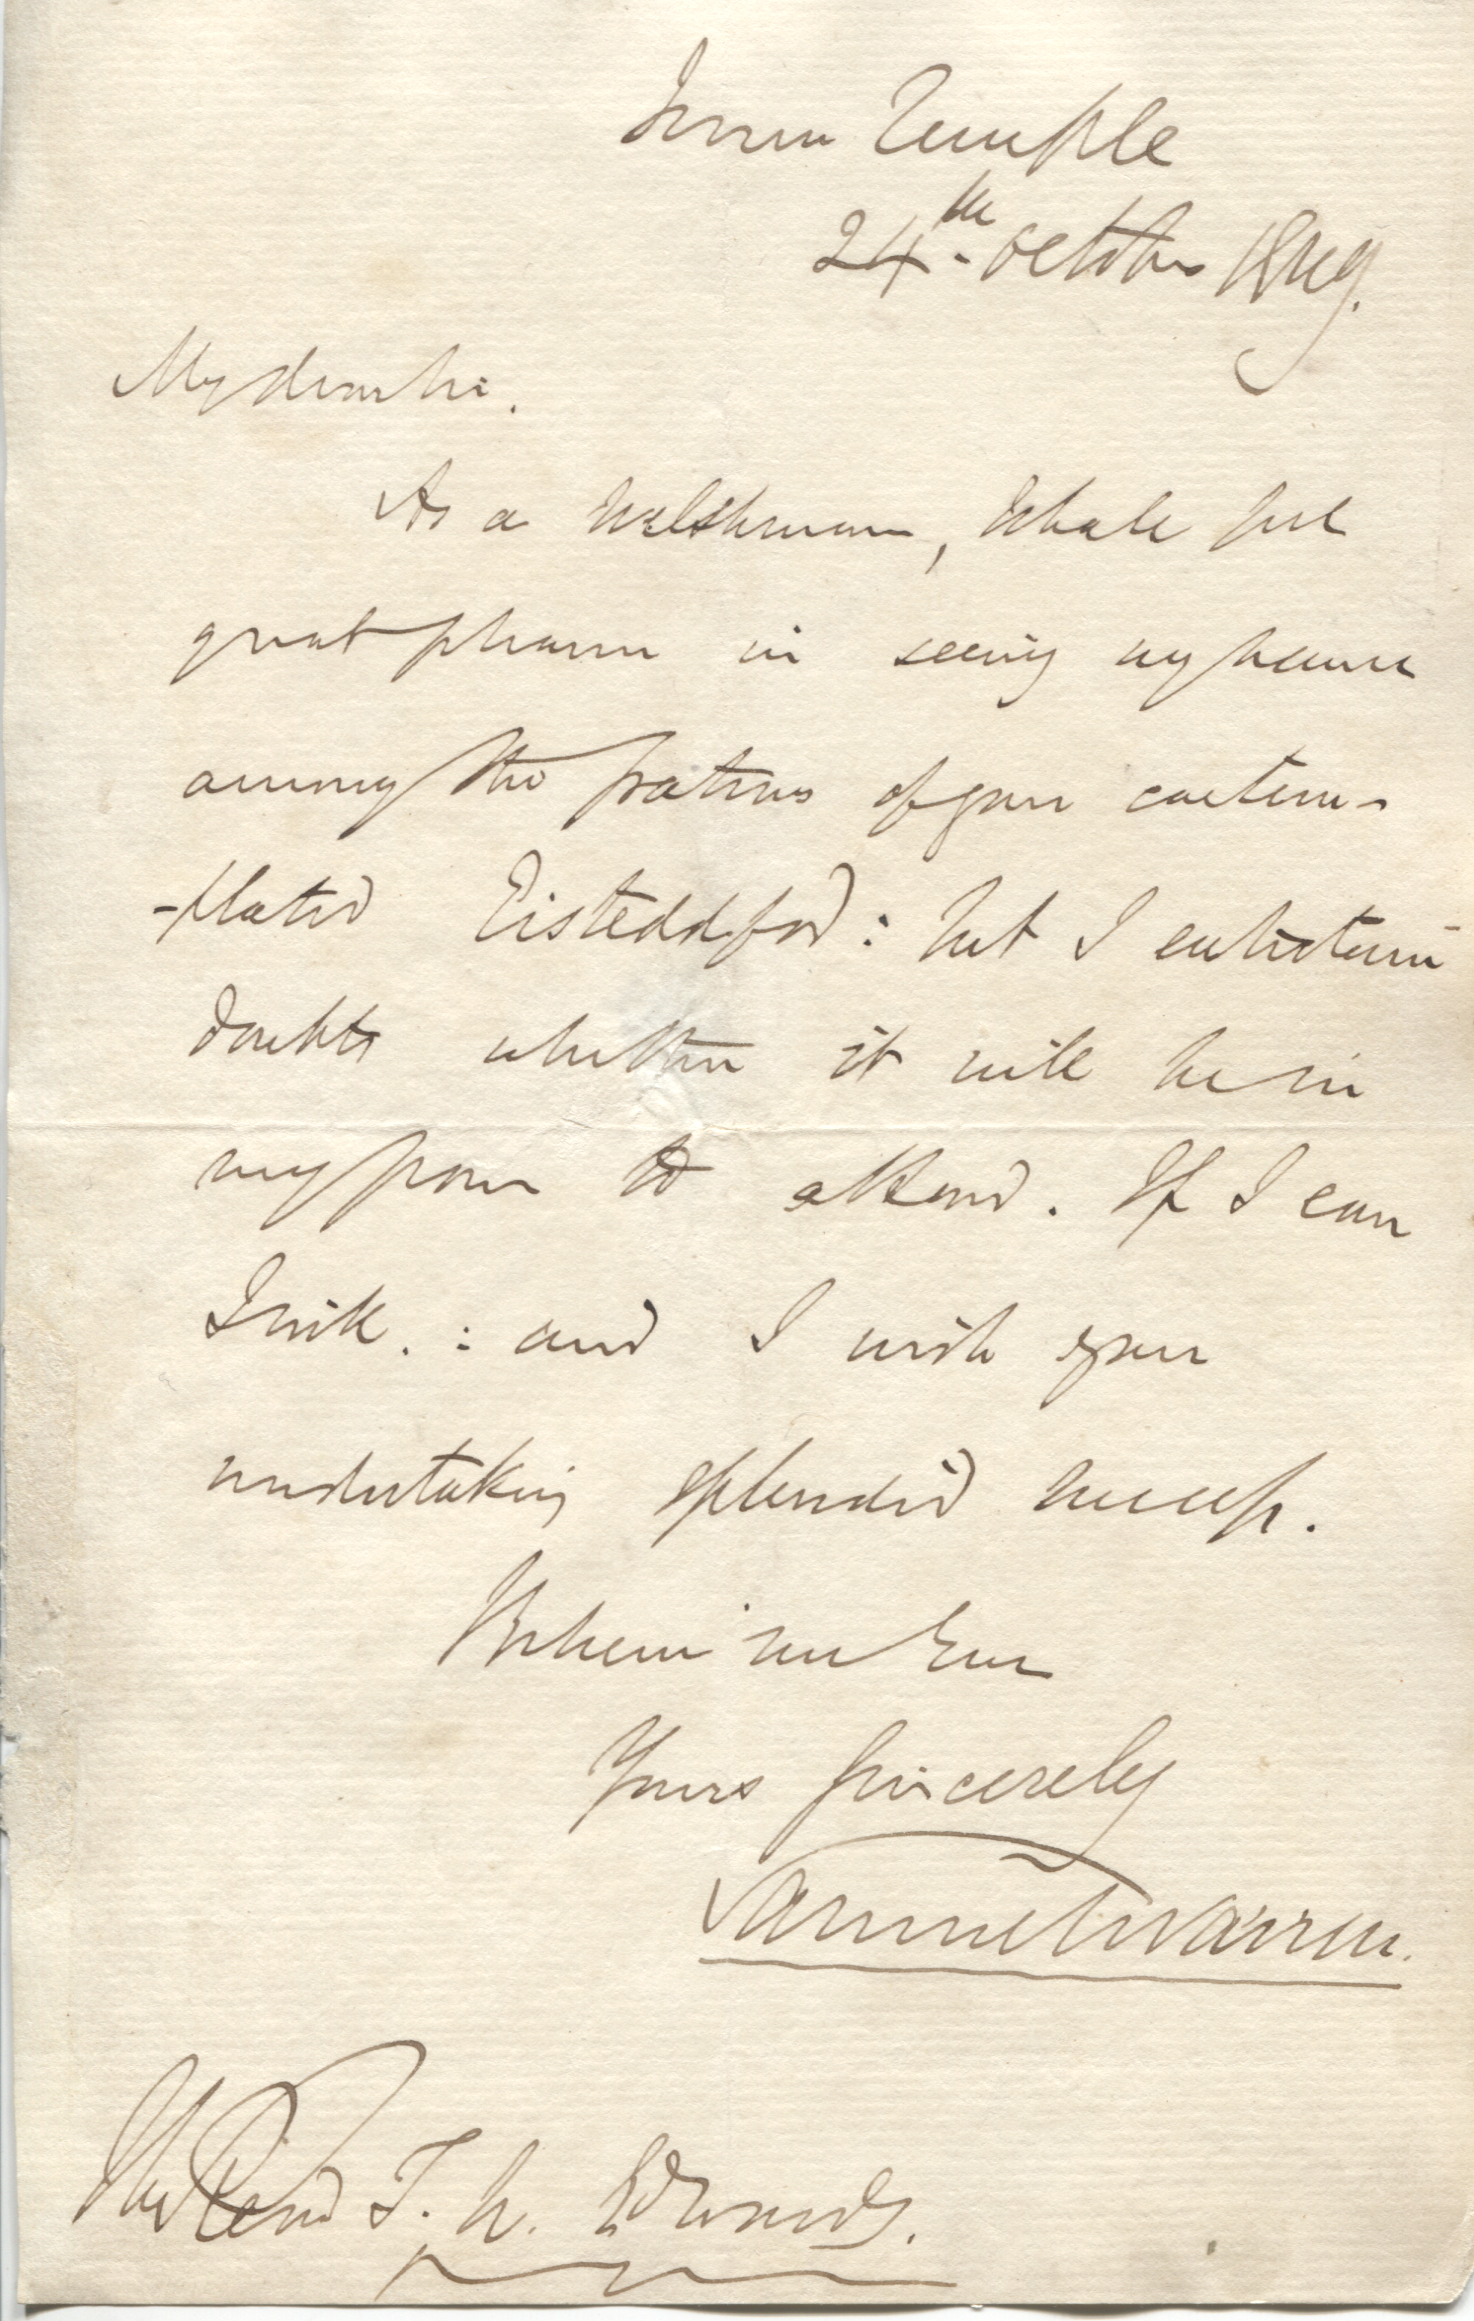 Inner Temple
24th October 1849.
My dear Sir.
As a Welshman, I shall feel
great pleasure in seeing my name
among the patrons of your contem-
-plated Eisteddfod: but I entertain
doubts whether it will be in
my power to attend. If I can
I will. : and I wish your
undertaking splendid success.
Believe me Ever
Yours sincerely
Samuel Warren.
The Revd T. W. Edwards.